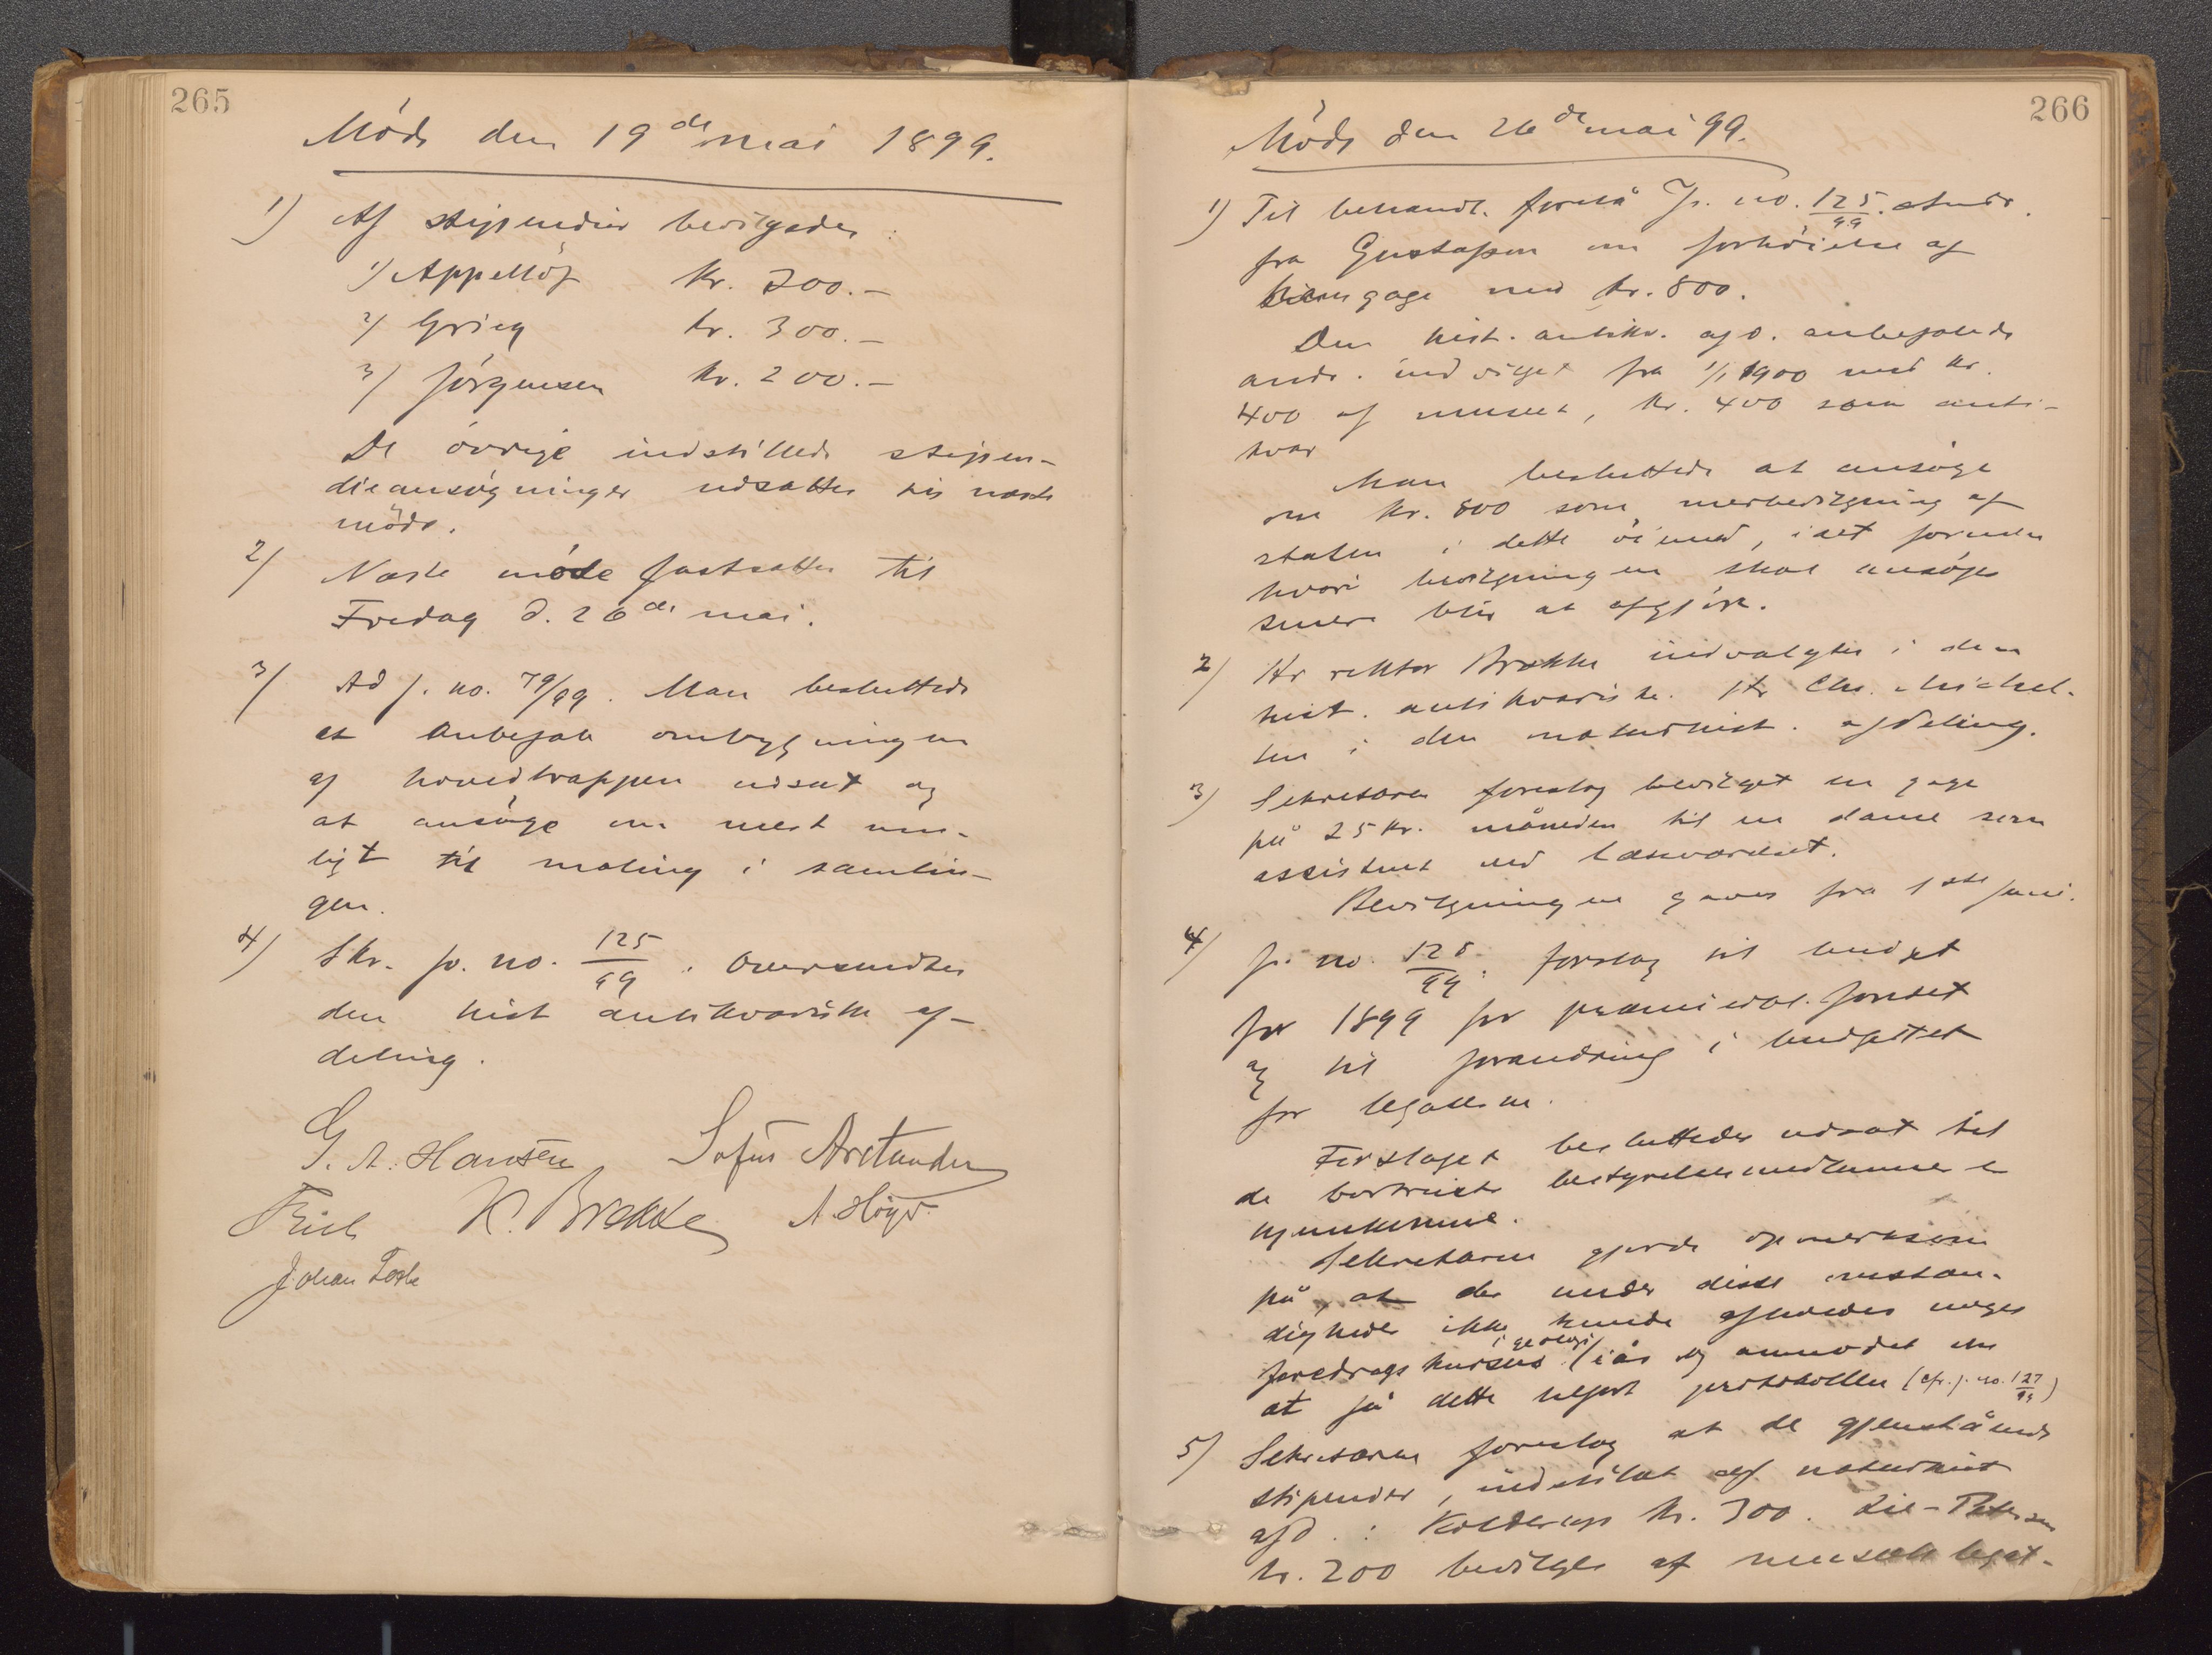 265
Møde den 19de mai 1899.
1) Af stipendier bevilgedes:
1) Appelløf kr. 300.—
2) Grieg kr. 300.—
3) Jørgensen kr. 200.—
De øvrige indstillede stipen-
dieansøgninger udsattes til næste
møde.
2) Næste møde fastsattes til
Fredag d. 26de mai.
3) Ad j. no. 79/99. Man besluttede
at anbefale ombygningen
af hovedtrappen udsat og
at ansøge om mest mu-
ligt til maling i samlin-
gen.
4) Skr. jr. no. 125/99. oversendtes
den hist antikvariske af-
deling.
G. A. Hansen Sofus Arctander
Friele K. Brekke A. Høyer
Johan
266
Møde den 26de mai 99.
1) Til behandl. forelå Jr. no. 125/99. andr.
fra Gustafson om forhøielse af
gage med kr. 800.
Den hist. antikv. afd. anbefalede
andr. indvilget fra 1/1 1900 med kr.
400 af museet, kr. 400 som anti-
kvar
Man besluttede at ansøge
om kr. 800 som merbevilgning af
staten i dette øiemed, idet formen
hvori bevilgningen skal ansøges
senere blir at afgjøre.
2) Hr rektor Brekke indvalgtes i den
hist. antikvariske. Hr Chr. Michel-
sen i den naturhist. afdeling.
3) Sekretæren foreslog bevilget en gage
på 25 kr. måneden til en dame som
assistent ved læseværelset.
Bevilgningen gaves fra 1ste juni.
4) Jr. no. 128/99: forslag til budget
for 1899 for fondet
og til forandring i budgettet
for legaterne.
Forslaget besluttedes udsat til
de bortreiste bestyrelsesmedlemmer er
hjemkomne.
Sekretæren gjorde opmerksom
på, at der under disse omstæn-
digheder ikke kunde afholdes noget
foredragskursus i geologi iår og anmodet om
at få dette tilført protokollen (cfr. j. no. 127/99)
5) Sekretæren foreslog at de gjenstående
stipendier, indstillet af naturhist
afd.: Kolderup kr. 300. Lie-Petersen
kr. 200 bevilges af museets legat-